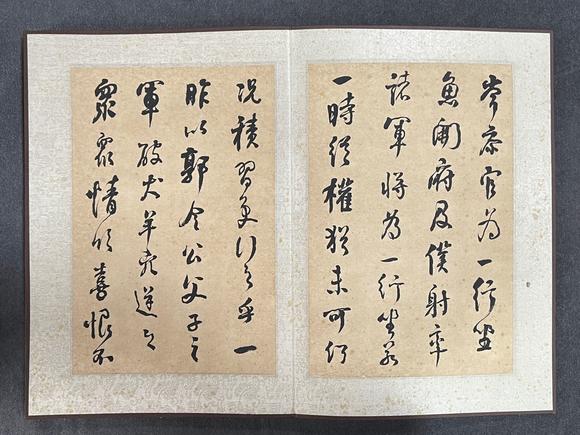 常參官為一行坐
魚開府及僕射率
諸軍將為一行坐若
一時從權猶未可何
況積習更行之乎一
昨以郭令公父子之
軍破犬羊兇逆之
眾眾情欣喜恨不